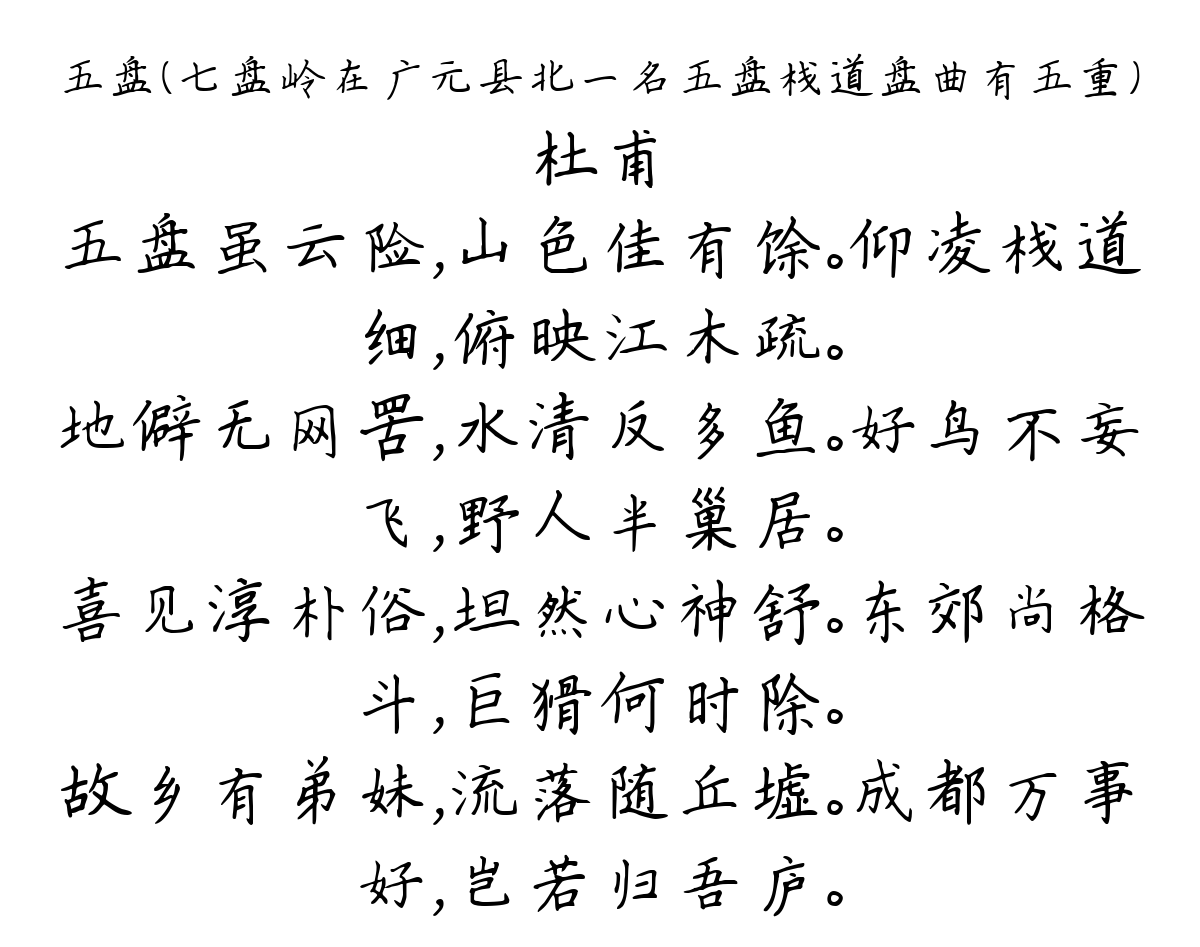 五盘(七盘岭在广元县北一名五盘栈道盘曲有五重)
杜甫
五盘虽云险,山色佳有馀。仰凌栈道
细,俯映江木疏。
地僻无网罟,水清反多鱼。好鸟不妄
飞,野人半巢居。
喜见淳朴俗,坦然心神舒。东郊尚格
斗,巨猾何时除。
故乡有弟妹,流落随丘墟。成都万事
好,岂若归吾庐。